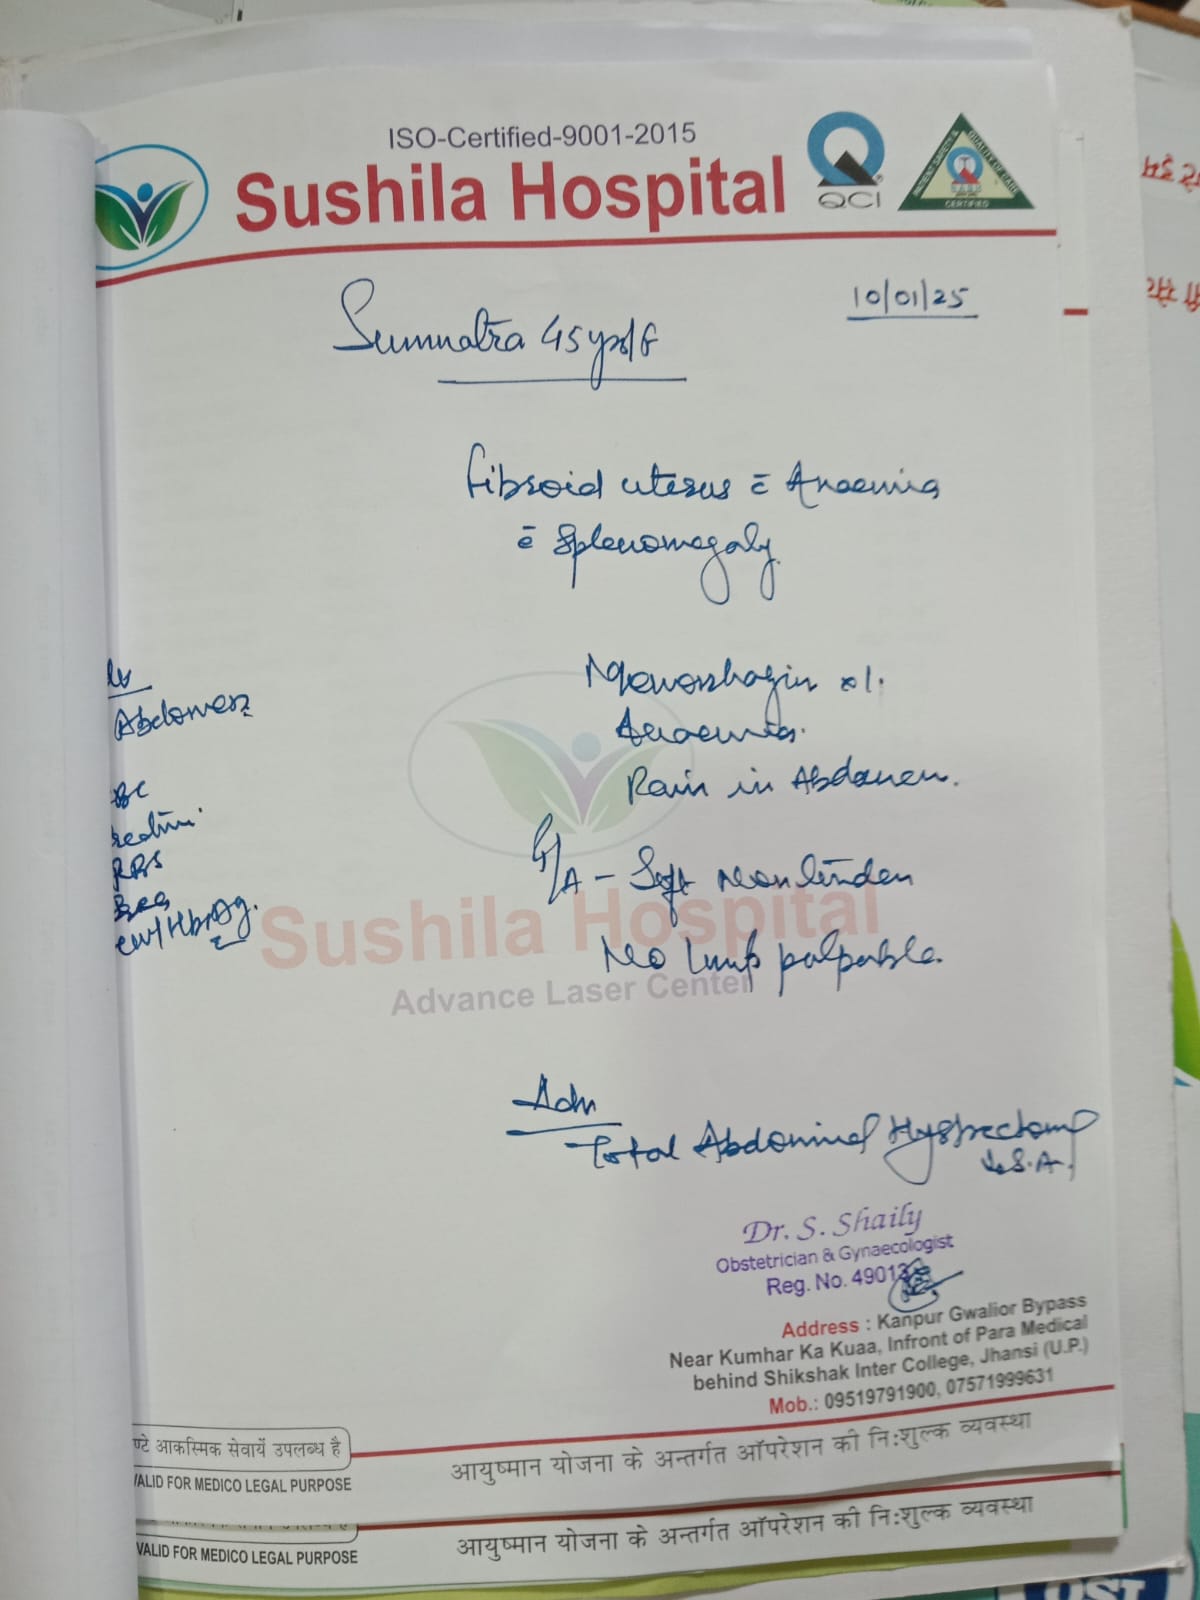 ISO-Certified-9001-2015
Sushila Hospital
QCI
PATIENT SAFETY & QUALITY OF CARE
CERTIFIED
10/01/25
45yrs/F
Fibroid uterus c̄ Anaemia
c̄ Splenomegaly
Menorrhagia
Anaemia.
Pain in Abdomen.
P/A - Soft Non tender
No lump palpable.
Abdomen
RBS
HbsAg.
Sushila Hospital
Advance Laser Center
Adv
Total Abdominal Hystrectomy
U.S.A.
Dr. S. Shaily
Obstetrician & Gynaecologist
Reg. No.
Address : Kanpur Gwalior Bypass
Near Kumhar Ka Kuaa, Infront of Para Medical
behind Shikshak Inter College, Jhansi (U.P.)
Mob.: 09519791900, 07571999631
आकस्मिक सेवायें उपलब्ध है
VALID FOR MEDICO LEGAL PURPOSE
आयुष्मान योजना के अन्तर्गत ऑपरेशन की नि:शुल्क व्यवस्था
VALID FOR MEDICO LEGAL PURPOSE
आयुष्मान योजना के अन्तर्गत ऑपरेशन की नि:शुल्क व्यवस्था